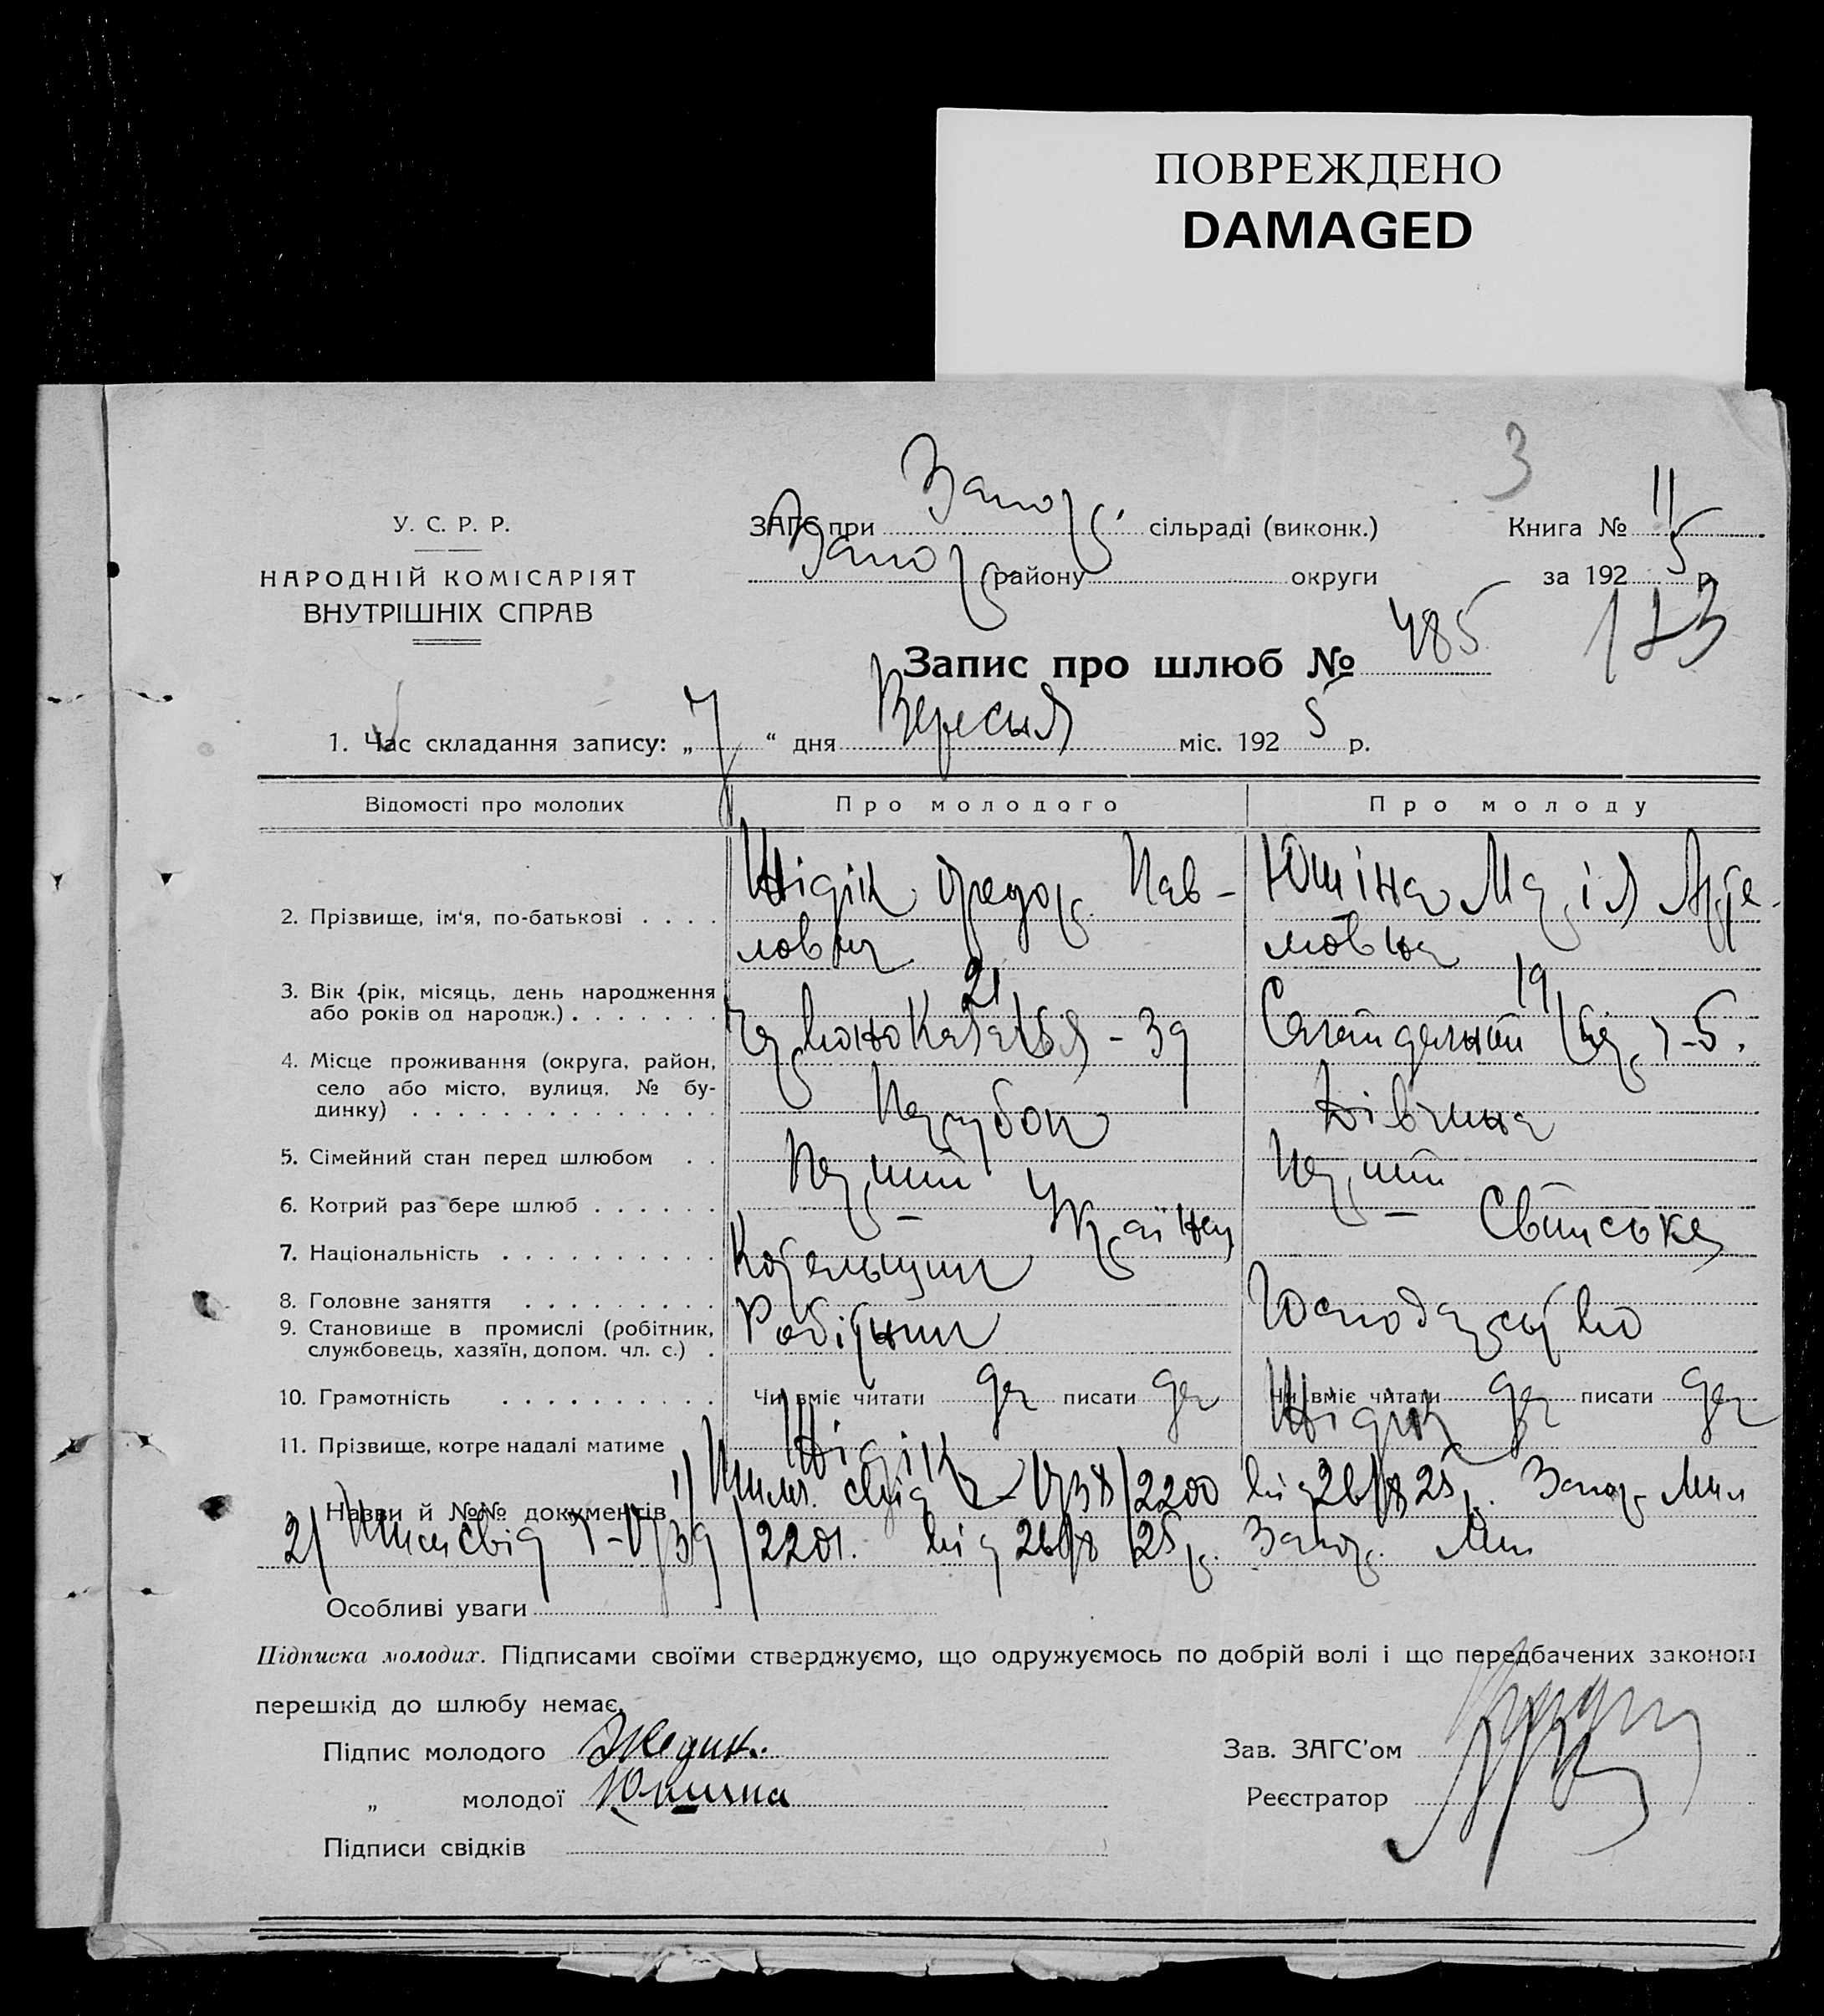 ПОВРЕЖДЕНО
DAMAGED
3
У. С. Р. Р.
НАРОДНІЙ КОМІСАРІЯТ
ВНУТРІШНІХ СПРАВ
ЗАГС при Запор. сільраді (виконк.)
Запор. району округи
Книга № 11
за 1925 р.
173
Запис про шлюб № 485
1. Час складання запису: „ 7 “ дня Вересня міс. 1925 р.
Відомості про молодих
Про молодого
Про молоду
2. Прізвище, ім'я, по-батькові
Жідік Федор. Пав-
лович
Юшіна Марія Арте-
мовна
3. Вік (рік, місяць, день народження
або років од народж.)
21
19
4. Місце проживання (округа, район,
село або місто, вулиця, № бу-
динку)
39
5. Сімейний стан перед шлюбом
Парубок
Дівчина
6. Котрий раз бере шлюб
Перший
Перший
7. Національність
Українец
8. Головне заняття
Котельщик
9. Становище в промислі (робітник,
службовець, хазяїн, допом. чл. с.)
Робітник
Господарство
10. Грамотність
Чи вміє читати да писати да
Чи вміє читати да писати да
11. Прізвище, котре надалі матиме
Жідік
Жідік
Назви й №№ документів
1/ 1738/2200 від 26/8 25 р. Запор. Міл
2/ 1739/2201. від 26/8 25 р. Запор. Міл
Особливі уваги
Підписка молодих. Підписами своїми стверджуємо, що одружуємось по добрій волі і що передбачених законом
перешкід до шлюбу немає.
Підпис молодого Жедик.
„ молодої Юшина
Підписи свідків
Зав. ЗАГС'ом
Реєстратор